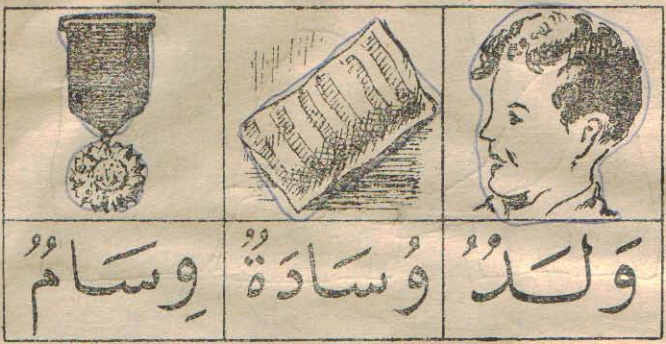 وَلَدٌ وُسَادَةٌ وِسَامٌ